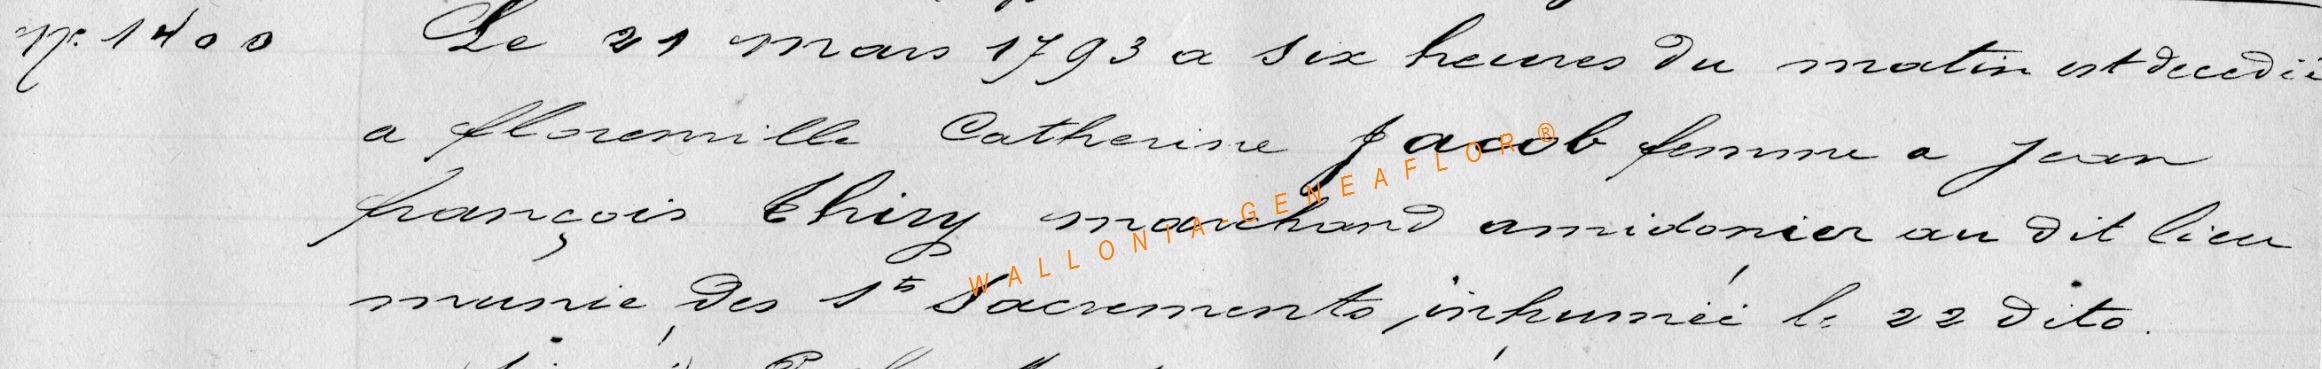 N°. 1400 Le 21 mars 1793 a six heures du matin est decedée
a florenville Catherine Jacob femme a Jean
françois thiry marchand amidonier au dit lieu
munie des Sts Sacrements, inhumée le 22 dito.
WALLONIA-GENEAFLOR®